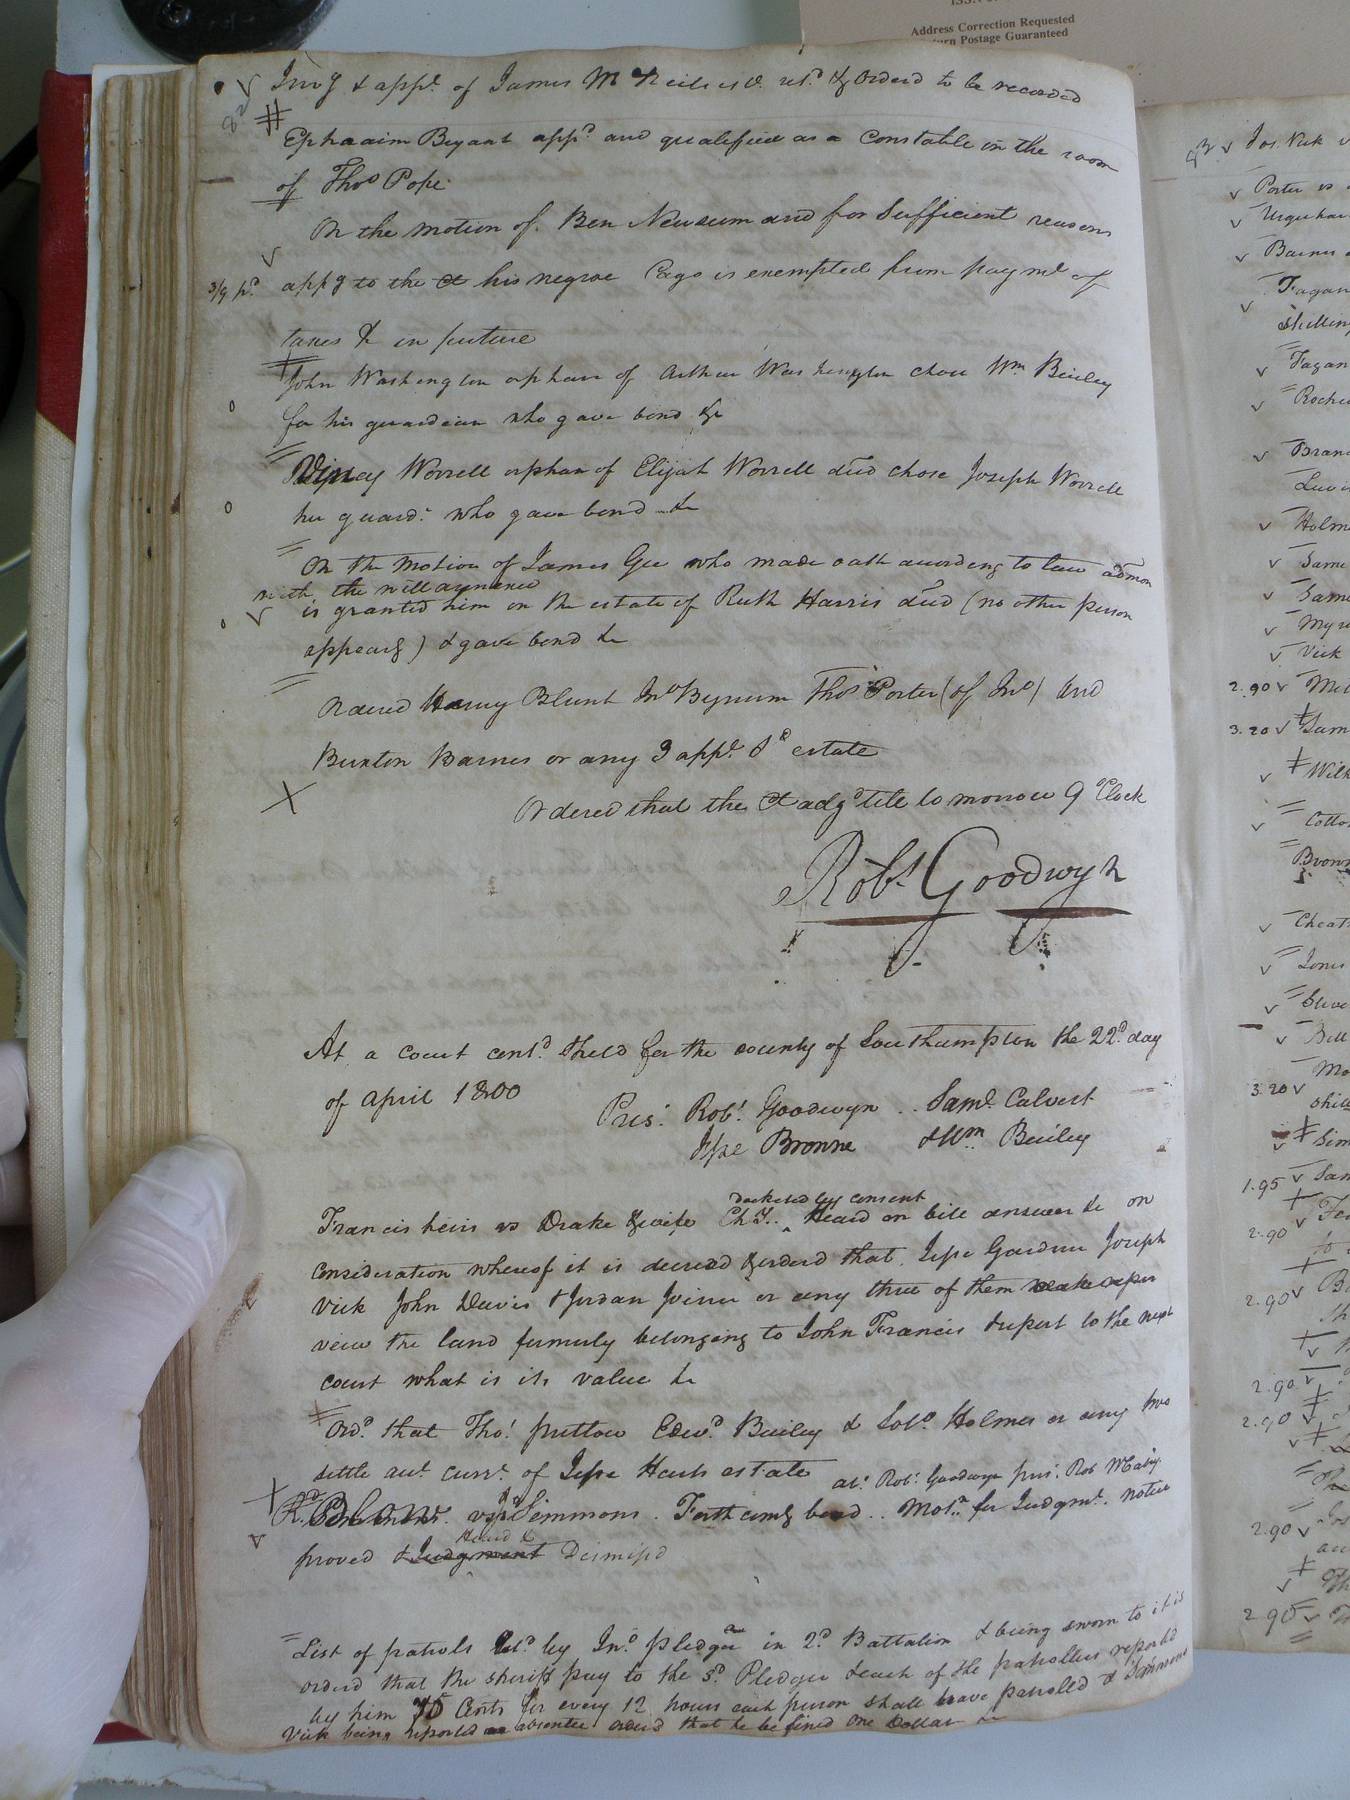 Address Correction Requested
Return Postage Guaranteed
Invy & appt. of James McNeils est. ret.d & Orderd to be recorded
Ephraim Bryant appd. and qualified as a Constable in the room
of Thos Pope
On the motion of Ben Newsum and for Sufficient reasons
3/9 pd. appg to the Ct his negroe is exempted from paymt of
taxes & in future
John Washington orphan of Arthur Washington chose Wm Bailey
for his guardian who gave bond &c
Worrell orphan of Elijah Worrell decd chose Joseph Worrell
her guard: who gave bond &c
On the Motion of James Gee who made oath according to law admon
with the will annexed
is granted him on the estate of Ruth Harris decd (no other person
appearg) & gave bond &c
Ordered Henry Blunt Jno Bynum Thos Porter (of Jno) and
Buxton Barnes or any 3 appt. sd estate
Ordered that the Ct adjd till to morrow 9 oClock
Robt Goodwyn
At a court contd. & held for the county of Southampton the 22d. day
of April 1800
Pres: Robt. Goodwyn .. Saml. Calvert
Jesse Browne & Wm. Bailey
docketed by consent
Francis heirs vs Drake & wife Ch.y.. ^ Heard on bill answer &c on
consideration whereof it is decreed & orderd that Jesse Gardner Joseph
Vick John Davis & Jordan Joiner or any three of them
view the land formerly belonging to John Francis & report to the next
court what is its value &c
Ord.d that Tho.s Pretlow Edwd. Bailey & Solo. Holmes or any two
settle act. currt. of Jesse Harts estate
abs.t Robt. Goodwyn pres.t Rob McCaby
vs Simmons. Forthcomg bond.. Mot.n for Judgmt. notice
Heard &
proved & Judgment Dismissd
List of patrols retd. by Jno Pledger in 2d. Battalion & being sworn to it is
orderd that the sheriff pay to the sd. Pledger & each of the patrollers reported
by him 75 Cents for every 12 hours each person shall have patrolled & Simmons
Vick being reported an absentee orderd that he be fined One Dollar
Jos. Vick v
Porter vs
Barnes
Fagan
shilling
Fagan
Holm
Same
Same
Vick
2.90
3.20
Wilk
Cotto
Brown
Cheat
Jones
Bell
3.20
Sim
1.95
Sam
2.90
2.90
2.90
2.90
2.90
2.90